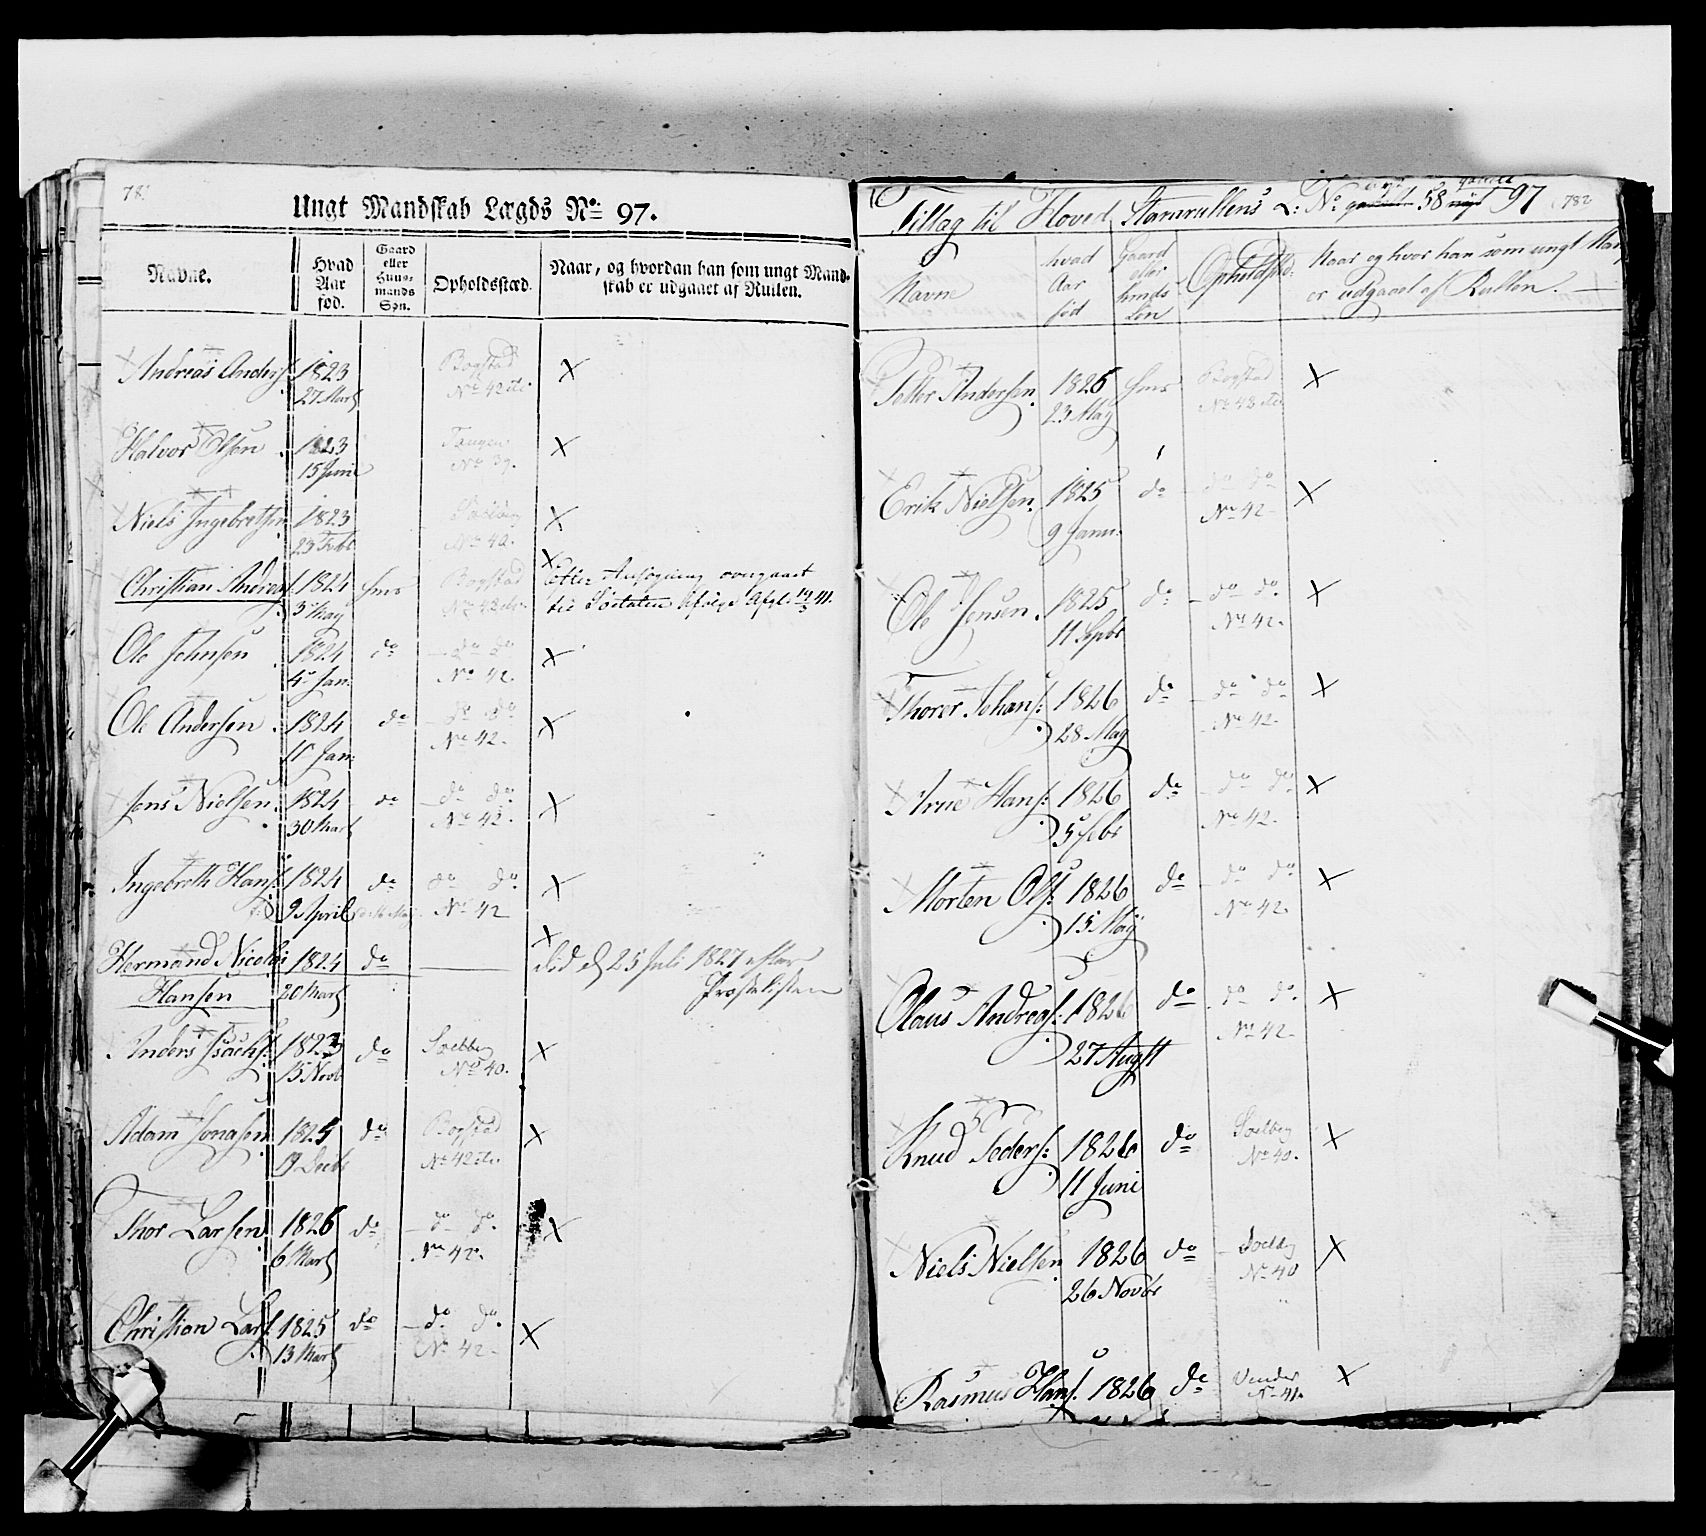 78
Ungt Mandskab Lægds No 97.
Navne.
Hvad Aar fød.
Gaard eller Huus-mands Søn.
Opholdssted.
Naar, og hvordan han som ungt Mand-
skab er udgaaet af Rullen.
Andreas Anders. 1823 Bogstad X
27 Marts No 42
Halvor Olsen 1823 Tangen X
15 Junii No 39.
Niels Ingebretsen 1823 X
23 Febr No 40.
Christian Andreas. 1824 hms Bogstad X Efter Ansøgning overgaaet
3 May No 42 til Søetaten ifølge Afgl. 19/3 41.
Ole Johnsen 1824 do do do X
4 Jan: No 42.
Ole Andersen 1824 do do do X
11 Jan: No 42.
Jens Nielsen 1824 do do do X
30 Marts No 42.
Ingebreth Hans: 1824 do do do X
9 April No 42
Hermand Nicolai 1824 do X død d 25 Juli 1827 efter
Hansen 20 Marts Præstelisten
Anders Isachs: 1823 do Soelberg X
15 Novb No 40.
Adam Jonasen 1825 do Bogstad X
19 Decbr No 42
Thor Larsen 1826 do do do X
6 Marts No 42.
Christian Lars. 1825 do do do X
13 Marts No 42
Tillæg til Hoved Stamrullens L: No 58 97 782
Navne
hvad Aar fød
Gaard eller hmds Søn
Opholdsst:
Naar og hvor han som ungt Man
er udgaaet af Rullen.
Petter Andersen 1826 hms Bogstad X
23 May No 42
Erik Nielsen 1825 do do do X
9 Janu. No 42
Ole Jensen 1825 do do do X
11 Sepbr No 42.
Thorer Johans: 1826 do do do X
28 May No 42.
Arne Hans: 1826 do do do X
5 No 42.
Morten Ols: 1826 do do do X
15 May No 42.
Olaus Andreas: 1826 do do do X
27 Augst No 42
Knud Peders: 1826 do Soelberg X
11 Juni No 40.
Niels Nielsen 1826 do Soelberg X
26 Novbr No 40
Rasmus Hans. 1826 do X
No 41.